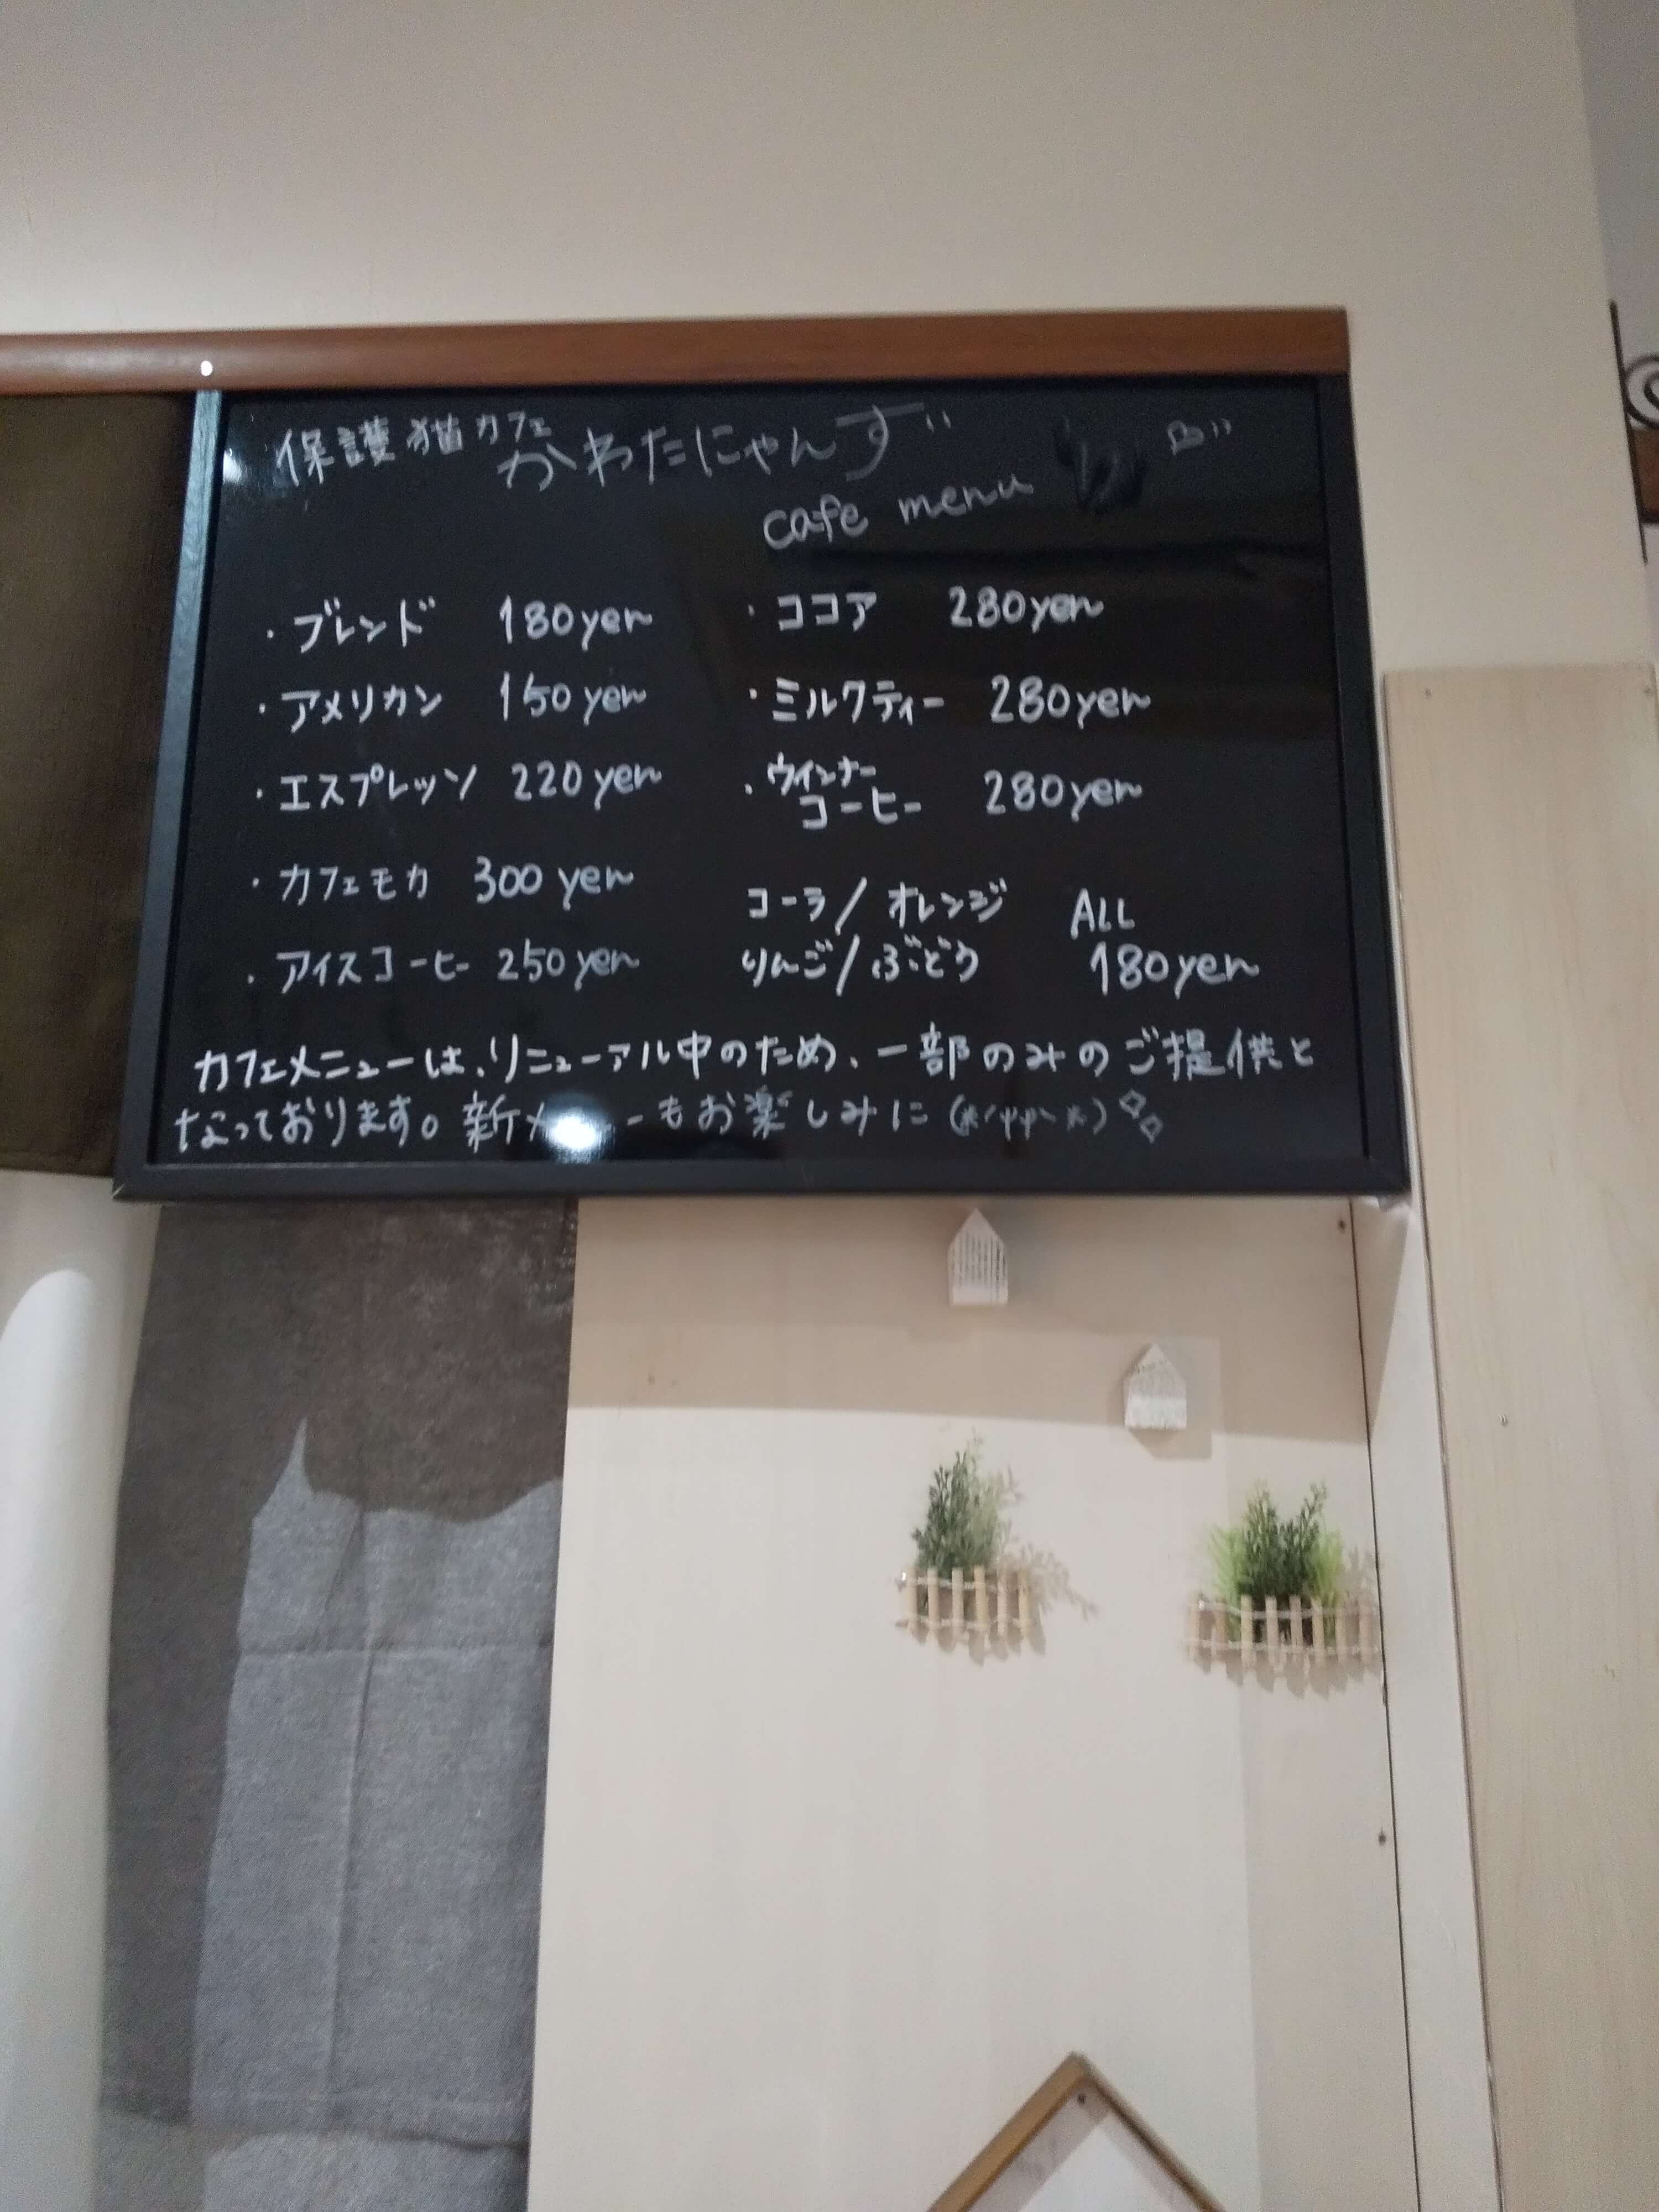 保護猫カフェ かわたにゃんず
cafe menu
・ブレンド 180yen
・アメリカン 150yen
・エスプレッソ 220yen
・カフェモカ 300yen
・アイスコーヒー 250yen
・ココア 280yen
・ミルクティー 280yen
・ウインナー
コーヒー 280yen
コーラ/オレンジ ALL
りんご/ぶどう 180yen
カフェメニューは、リニューアル中のため、一部のみのご提供と
なっております。新メーもお楽しみに